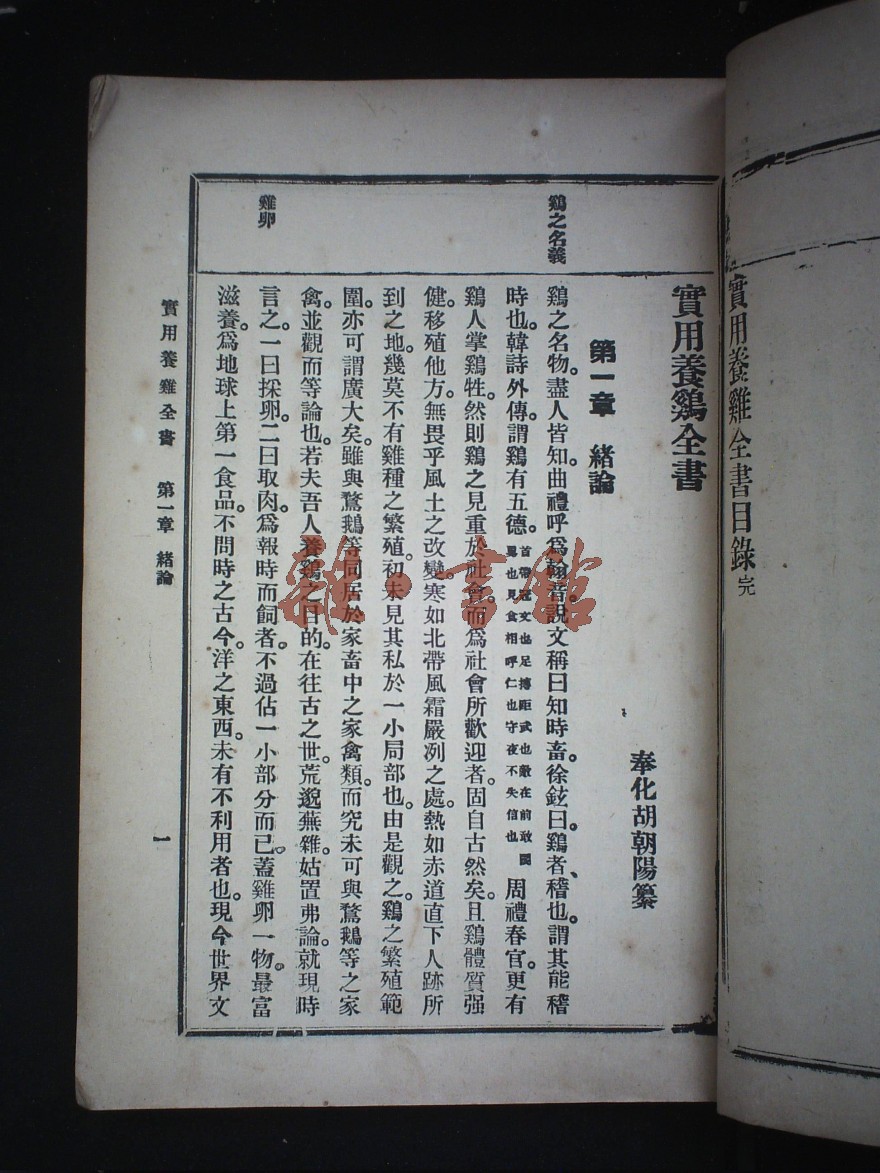 實用養雞全書目錄 完
實用養鷄全書
奉化胡朝陽纂
第一章 緒論
鷄之名義
鷄之名物。盡人皆知。曲禮呼爲翰音。說文稱曰知時畜。徐鉉曰。鷄者、稽也。謂其能稽
時也。韓詩外傳。謂鷄有五德。首帶冠文也足搏距武也敵在前敢鬬勇也見食相呼仁也守夜不失信也 周禮春官。更有
鷄人掌鷄牲。然則鷄之見重於社會。而爲社會所歡迎者。固自古然矣。且鷄體質强
健。移殖他方。無畏乎風土之改變。寒如北帶風霜嚴冽之處。熱如赤道直下人跡所
到之地。幾莫不有雞種之繁殖。初未見其私於一小局部也。由是觀之。鷄之繁殖範
圍。亦可謂廣大矣。雖與鶩鵝等同居於家畜中之家禽類。而究未可與鶩鵝等之家
禽。並觀而等論也。若夫吾人養鷄之目的。在往古之世。荒邈蕪雜。姑置弗論。就現時
雞卵
言之。一曰採卵。二曰取肉。爲報時而飼者。不過佔一小部分而已。蓋雞卵一物。最富
滋養。爲地球上第一食品。不問時之古今。洋之東西。未有不利用者也。現今世界文
實用養雞全書 第一章 緒論
一
雜·書館